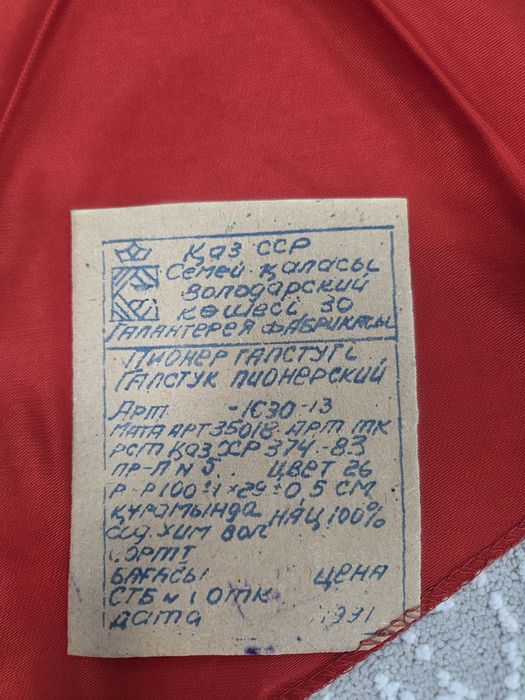 ҚАЗ ССР
СЕМЕЙ ҚАЛАСЫ
ВОЛОДАРСКИЙ
КӨШЕСІ 30
ГАЛАНТЕРЕЯ ФАБРИКАСЫ
ПИОНЕР ГАЛСТУГІ
ГАЛСТУК ПИОНЕРСКИЙ
АРТ -1С30-13
МАТА АРТ 35018 АРТ ТК
РСТ ҚАЗ ССР 374-83
ПР-Л N 5. ЦВЕТ 26
Р-Р 100±1×29±0,5 СМ
ҚҰРАМЫНДА НАЦ 100%
ХИМ ВОЛ
СОРТТ
БАҒАСЫ ЦЕНА
СТБ N 1 ОТК
ДАТА 1991